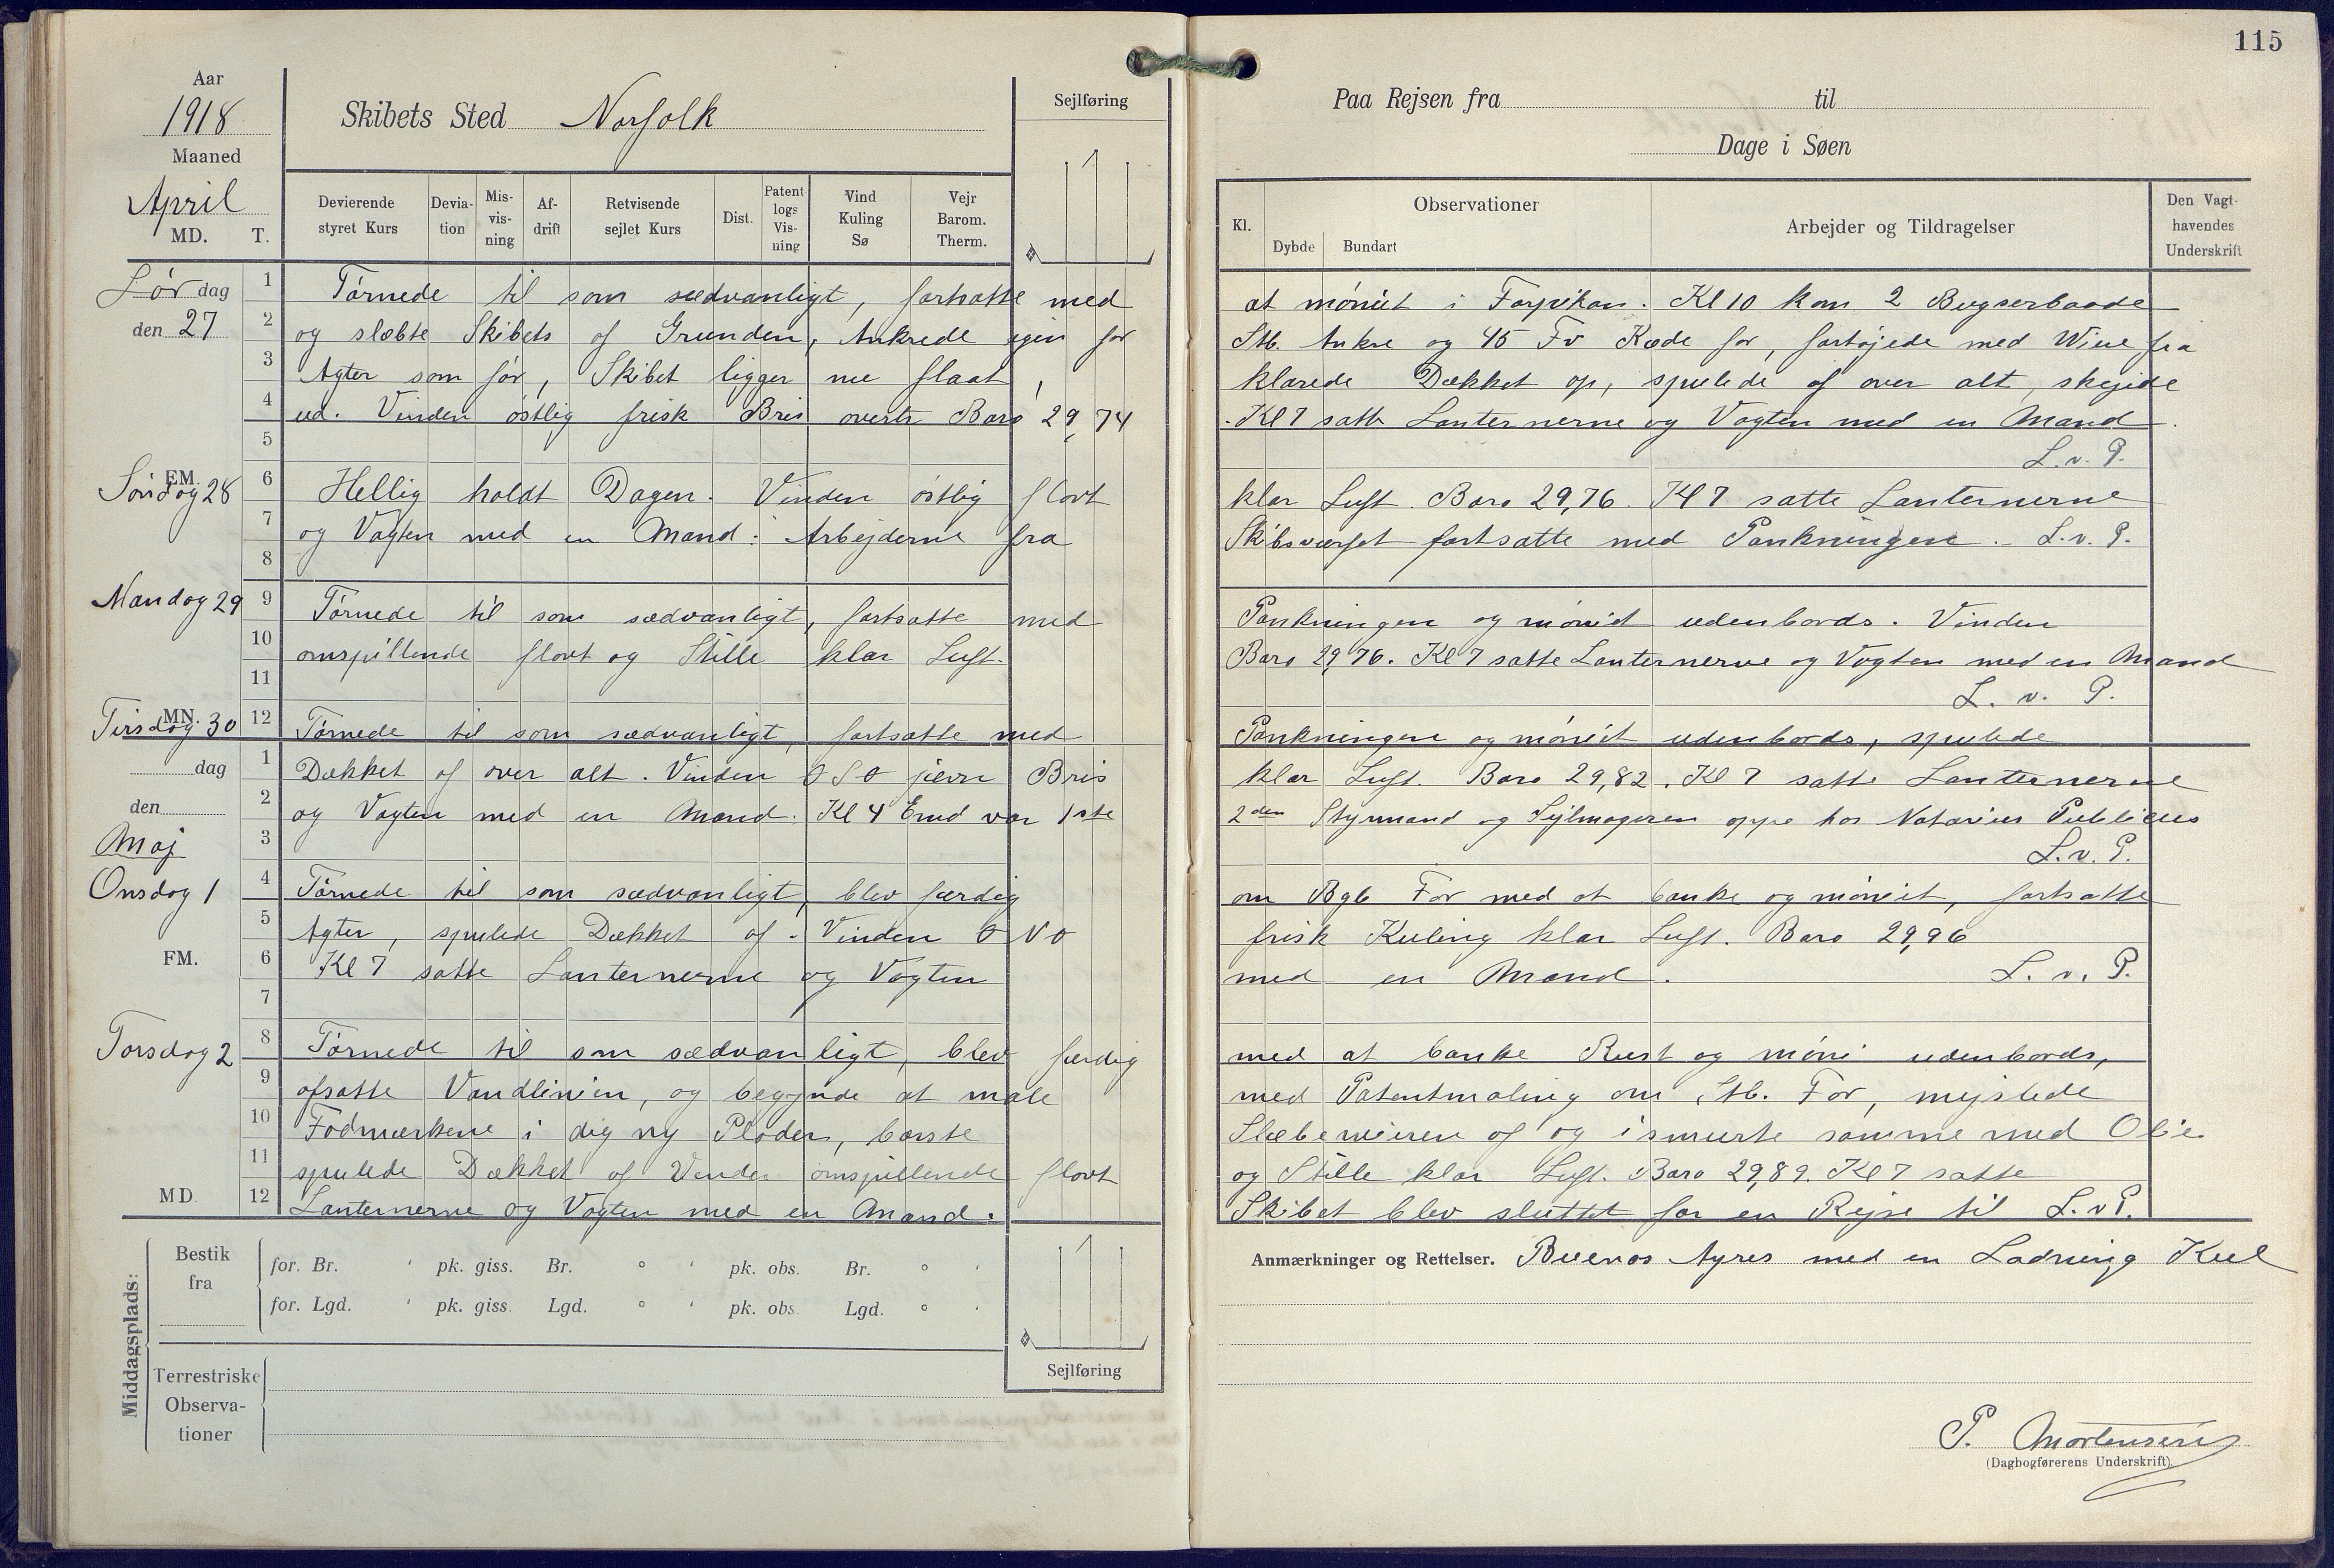 115
Aar
1918
Maaned
April
MD. T.
Skibets Sted Norfolk
Sejlføring
Devierende styret Kurs
Deviation
Misvisning
Afdrift
Retvisende sejlet Kurs
Dist.
Patent logs Visning
Vind Kuling Sø
Vejr Barom. Therm.
Paa Rejsen fra til
Dage i Søen
Kl.
Observationer
Dybde Bundart
Arbejder og Tildragelser
Den Vagthavendes Underskrift
Lør dag 1 Tørnede til som sædvanligt, fortsatte med at møniet i Forpikan. Kl 10 kom 2 Bugserbaade
den 27 2 og slæbte Skibets af Grunden, Ankrede igen for Stb. Ankre og 45 Fv Kæde for, fortøjede med Wire fra
3 Agter som før, Skibet ligger nu flaat, klarede Dækket op, spulede af over alt, skejde
4 ud. Vinden østlig frisk Bris overtr Baro 29,74. Kl 7 satte Lanternerne og Vagten med en Mand.
5 L. v. P.
EM. Søndag 28 6 Hellig holdt Dagen. Vinden østlig flovt klar Luft. Baro 29,76. Kl 7 satte Lanternerne
7 og Vagten med en Mand: Arbejderne fra Skibsværfet fortsatte med Pankningen. L. v. P.
8
Mandag 29 9 Tørnede til som sædvanligt, fortsatte med Pankningen og møniet udenbords. Vinden
10 omspillende flovt og Stille klar Luft. Baro 29,76. Kl 7 satte Lanternerne og Vagten med en Mand
11 L. v. P.
MN. Tirsdag 30 12 Tørnede til som sædvanligt, fortsatte med Pankningen og møniet udenbords, spulede
dag 1 Dækket af over alt. Vinden OSO jævn Bris klar Luft. Baro 29,82. Kl 7 satte Lanternerne
den 2 og Vagten med en Mand. Kl 4 Emd var 1ste 2den Styrmand og Sejlmageren oppe hos Notarius Publicus
Maj 3 L. v. P.
Onsdag 1 4 Tørnede til som sædvanligt, blev færdig om Bgb For med at banke og møniet, fortsatte
5 Agter, spulede Dækket af. Vinden ONO frisk Kuling klar Luft. Baro 29,96
FM. 6 Kl 7 satte Lanternerne og Vagten med en Mand. L. v. P.
7
Torsdag 2 8 Tørnede til som sædvanligt, blev færdig med at banke Rust og møni udenbords,
9 afsatte Vandlinien, og begynde at male med Patentmaling om Stb. For, mejslede
10 Fodmærkene i dig ny Plader, børste Slæbewieren af og ismurte samme med Olie
11 spulede Dækket af Vinden omspillende flovt og Stille klar Luft. Baro 29,89. Kl 7 satte
MD. 12 Lanternerne og Vagten med en Mand. Skibet blev sluttet for en Rejse til L. v P.
Anmærkninger og Rettelser. Buenos Ayres med en Ladning Kul
Middagsplads:
Bestik fra
for. Br. ' pk. giss. Br. ° ' pk. obs. Br. ° '
for. Lgd. ' pk. giss. Lgd. ° ' pk. obs. Lgd. ° '
Terrestriske Observationer
Sejlføring
P. Mortensen
(Dagbogførerens Underskrift)